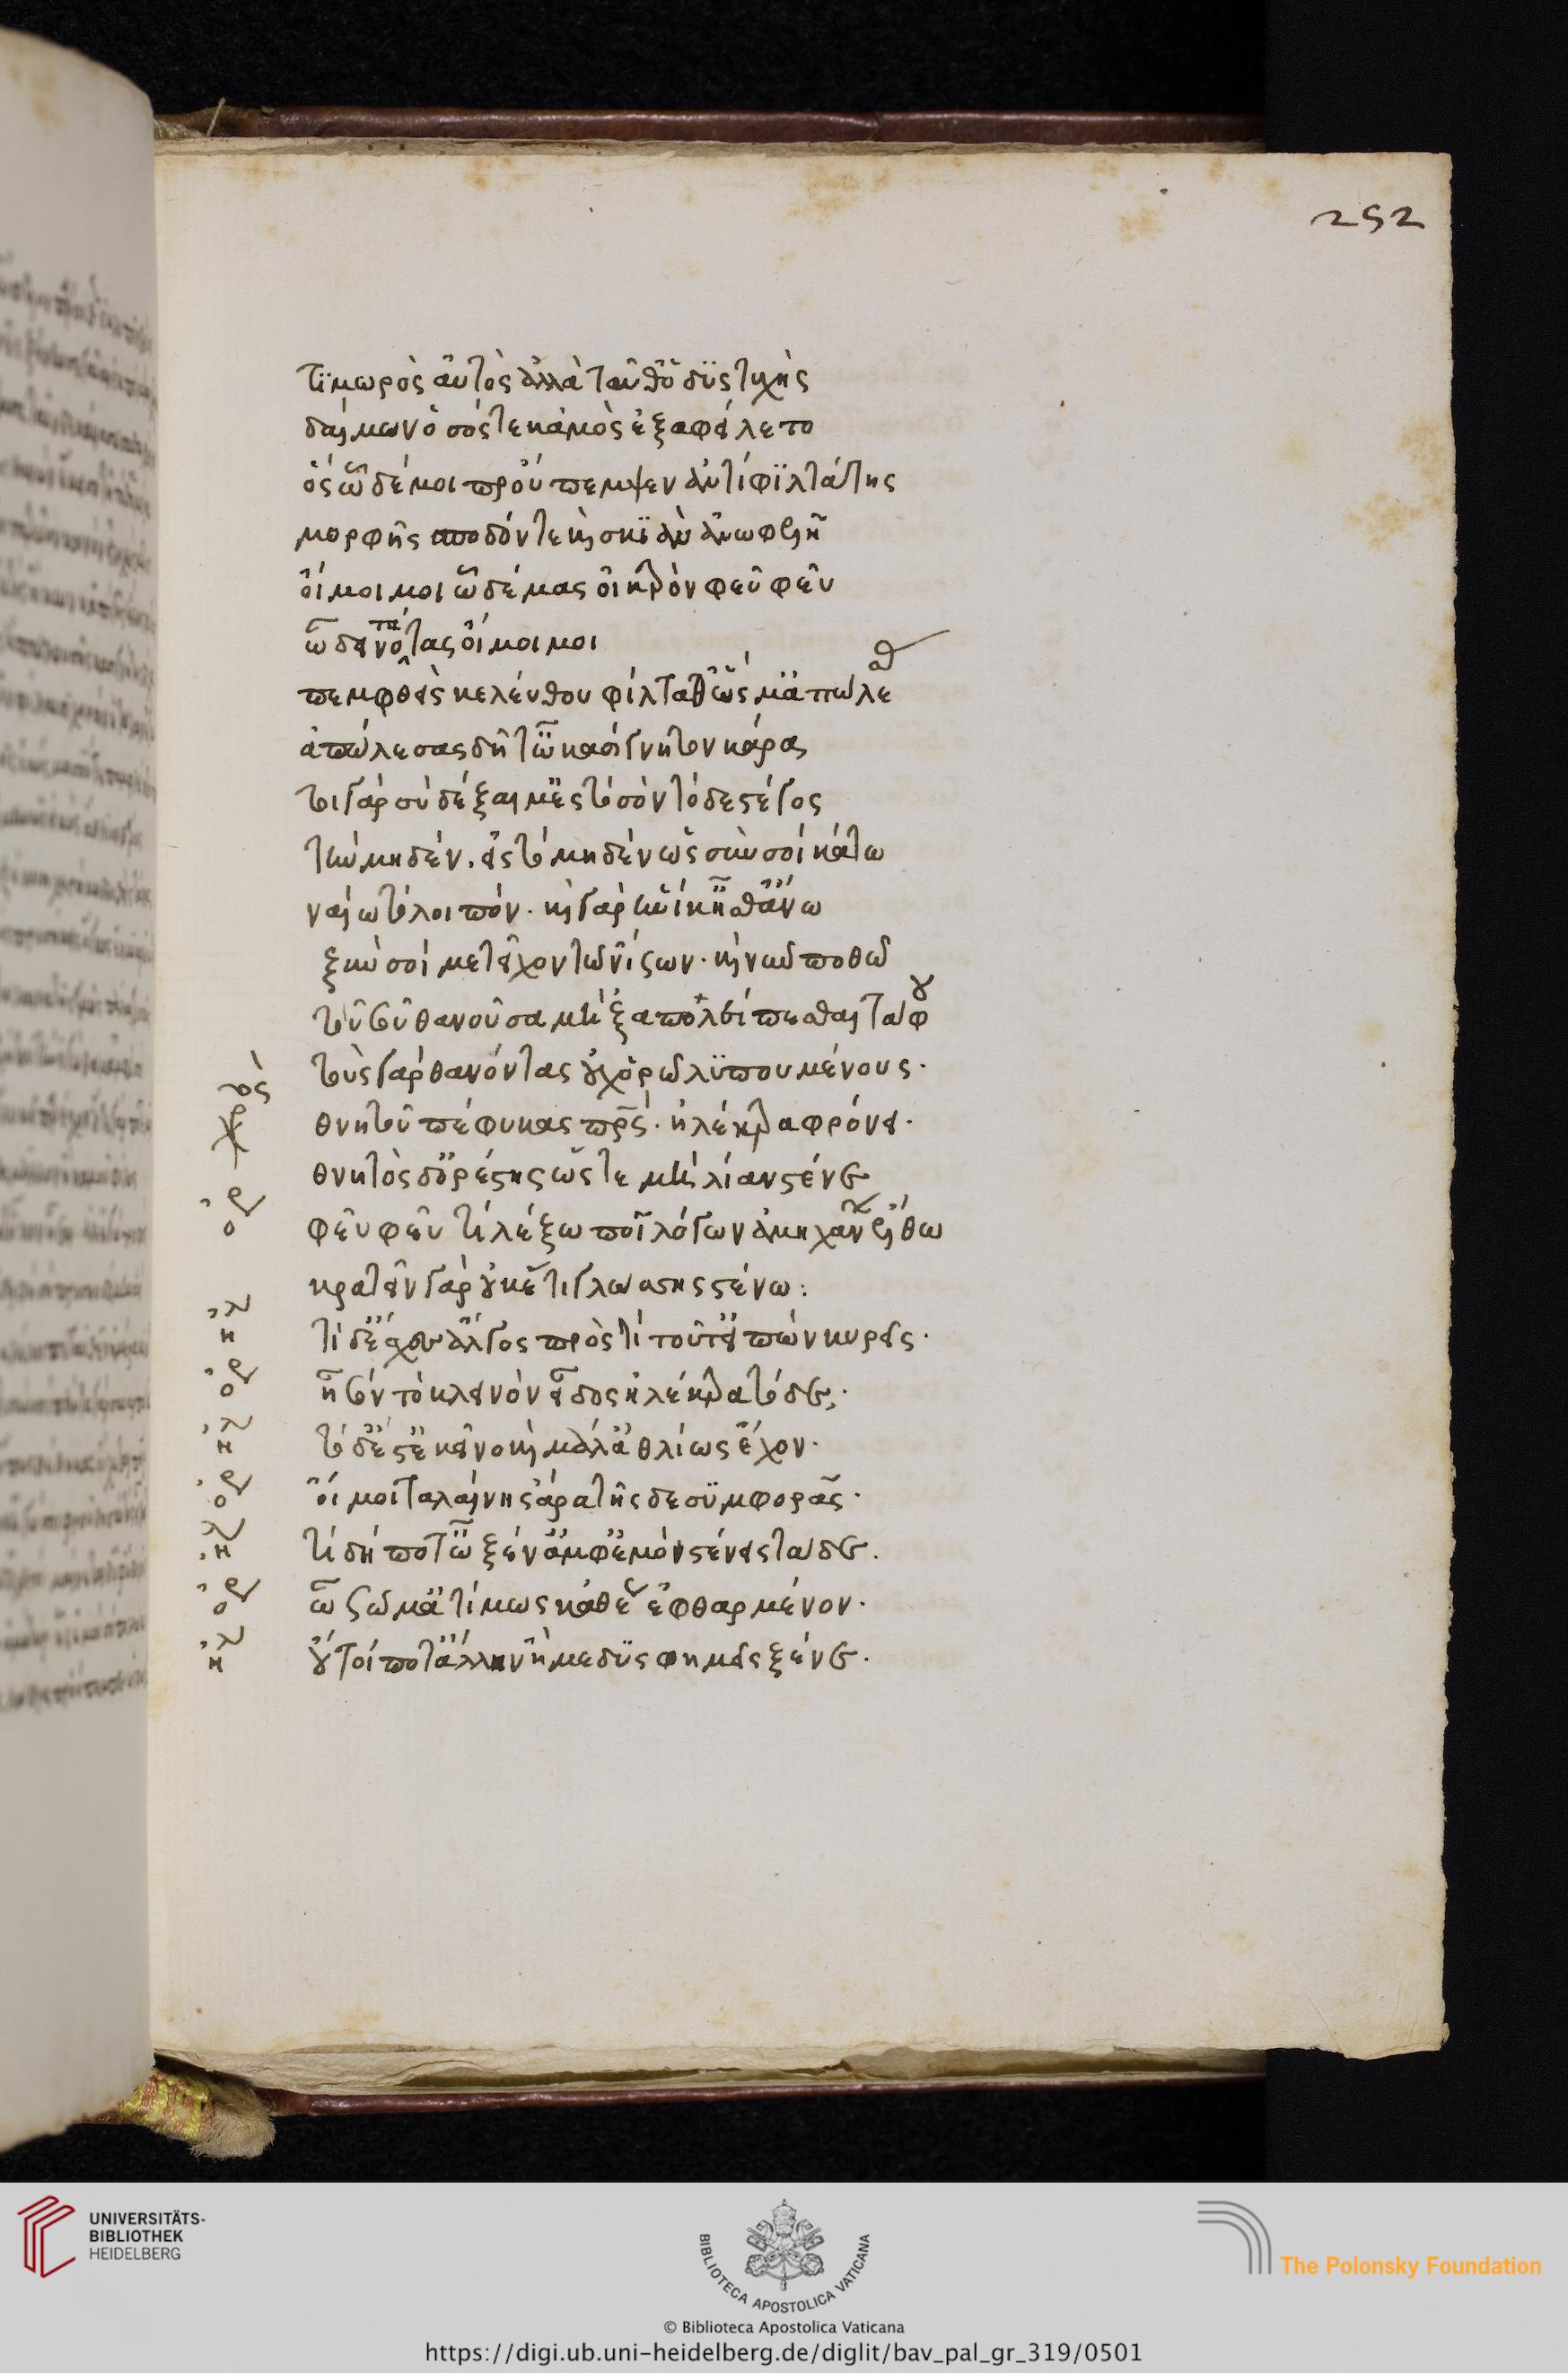 252
τιμωρὸς αὐτὸς ἀλλὰ ταῦθ' ὁ δυστυχὴς
δαίμων ὁ σός τε κἀμὸς ἐξαφείλετο
ὅς ὧδέ μοι προὔπεμψεν ἀντὶ φιλτάτης
μορφῆς σποδόν τε καὶ σκιὰν ἀνωφελῆ
οἴμοι μοι ὦ δέμας οἰκτρὸν φεῦ φεῦ
ὦ δεινοτάτας οἴμοι μοι
πεμφθεὶς κελεύθου φίλταθ' ὥς μ' ἀπώλεσας
ἀπώλεσας δῆτ' ὦ κασίγνητον κάρα
τοιγὰρ σὺ δέξαι μ' ἐς τὸ σὸν τόδε στέγος
τὴν μηδέν. εἰς τὸ μηδὲν ὡς σὺν σοὶ κάτω
ναίω τὸ λοιπόν· καὶ γὰρ ἡνίκ' ἦσθ' ἄνω
ξὺν σοὶ μετεῖχον τῶν ἴσων· καὶ νῦν ποθῶ
τοῦ σοῦ θανοῦσα μὴ ἐξαπολείπεσθαι τάφου
τοὺς γὰρ θανόντας οὐχ ὁρῶ λυπουμένους·
χορὸς θνητοῦ πέφυκας πρς· ἠλέκτρα φρόνει·
θνητὸς δ' ὀρέστης ὥστε μὴ λίαν στένε
ὀρ φεῦ φεῦ τί λέξω ποῖ λόγων ἀμηχανῶν ἔλθω
κρατεῖν γὰρ οὐκ ἔτι γλώσσης στένω:
ἠλ τί δ' ἔσχες ἄλγος πρὸς τί τοῦτ' εἰπὼν κυρεῖς·
ὀρ ἦ σὸν τὸ κλεινὸν εἶδος ἠλέκτρα τόδε;
ἠλ τόδ' ἔστ' ἐκεῖνο καὶ μάλ' ἀθλίως ἔχον·
ὀρ οἴμοι ταλαίνης ἄρα τῆς δε συμφορᾶς·
ἠλ τί δή ποτ' ὦ ξέν' ἀμφ' ἐμοὶ στένεις τάδε.
ὀρ ὦ σῶμ' ἀτίμως κἀθέως ἐφθαρμένον·
ἠλ οὔτοι ποτ' ἄλλην ἢ με δυσφημεῖς ξένε·
UNIVERSITÄTS-
BIBLIOTHEK
HEIDELBERG
BIBLIOTECA APOSTOLICA VATICANA
The Polonsky Foundation
© Biblioteca Apostolica Vaticana
https://digi.ub.uni-heidelberg.de/diglit/bav_pal_gr_319/0501